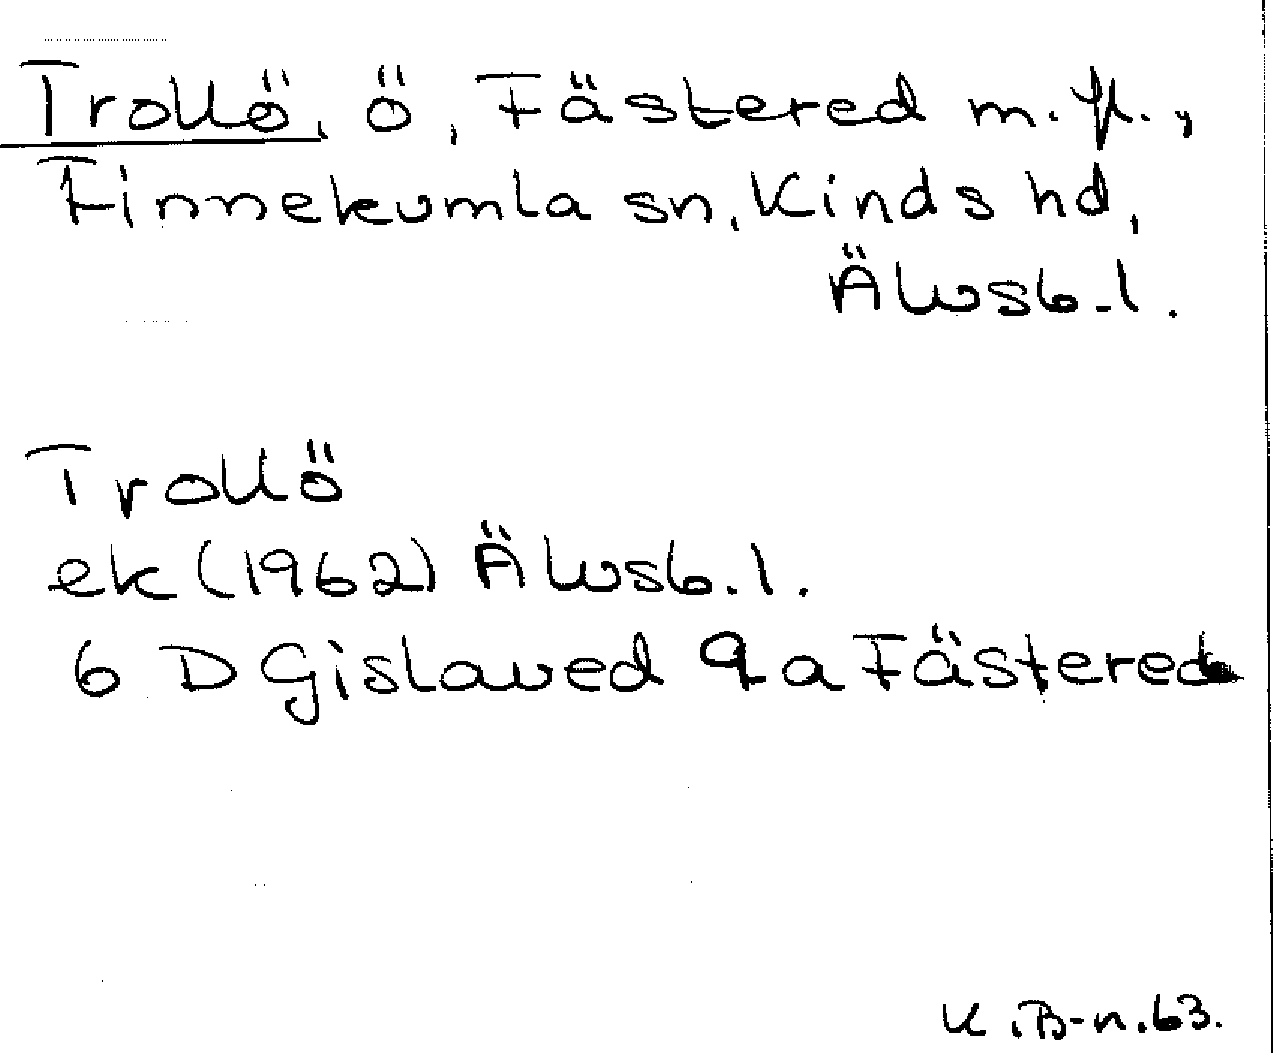 Trollö, ö, Fästered m.fl.,
Finnekumla sn, Kinds hd,
Älvsb.l.
Trollö
ek (1962) Älvsb.l.
6 D Gislaved 9a Fästered
K.B-n.63.